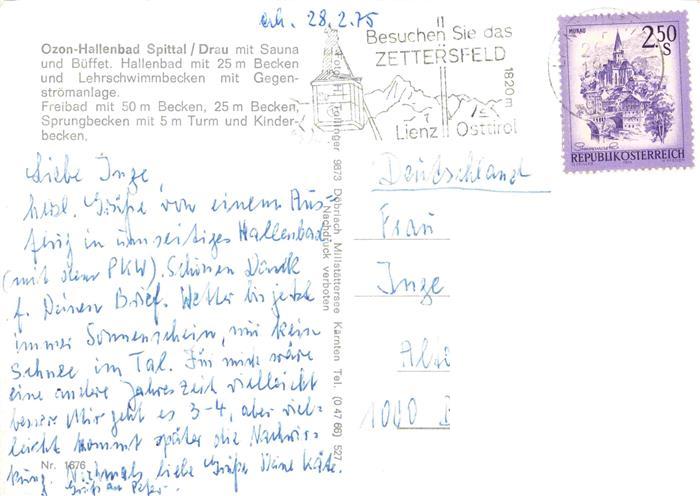 erh. 28.2.75
Ozon-Hallenbad Spittal/Drau mit Sauna
und Büffet. Hallenbad mit 25 m Becken
und Lehrschwimmbecken mit Gegen-
strömanlage.
Freibad mit 50 m Becken, 25 m Becken,
Sprungbecken mit 5 m Turm und Kinder-
becken.
Besuchen Sie das
ZETTERSFELD
1820 m
Lienz Osttirol
MURAU
2.50
S
REPUBLIK ÖSTERREICH
Liebe Inge,
herzl. Grüße von einem Aus-
flug in umseitiges Hallenbad
(mit dem PKW). Schönen Dank
f. Deinen Brief. Wetter bis jetzt
immer Sonnenschein, nur kein
Schnee im Tal. Für mich wäre
eine andere Jahreszeit vielleicht
besser. Mir geht es 3-4, aber viel-
leicht kommt später die Nachwir-
kung. Nochmals liebe Grüße Deine Käte.
Gruß an Peter.
Nr. 1676
9873 Döbriach Millstättersee Kärnten Tel. (0 47 66) 527
Nachdruck verboten
Deutschland
Frau
Inge
1000 B